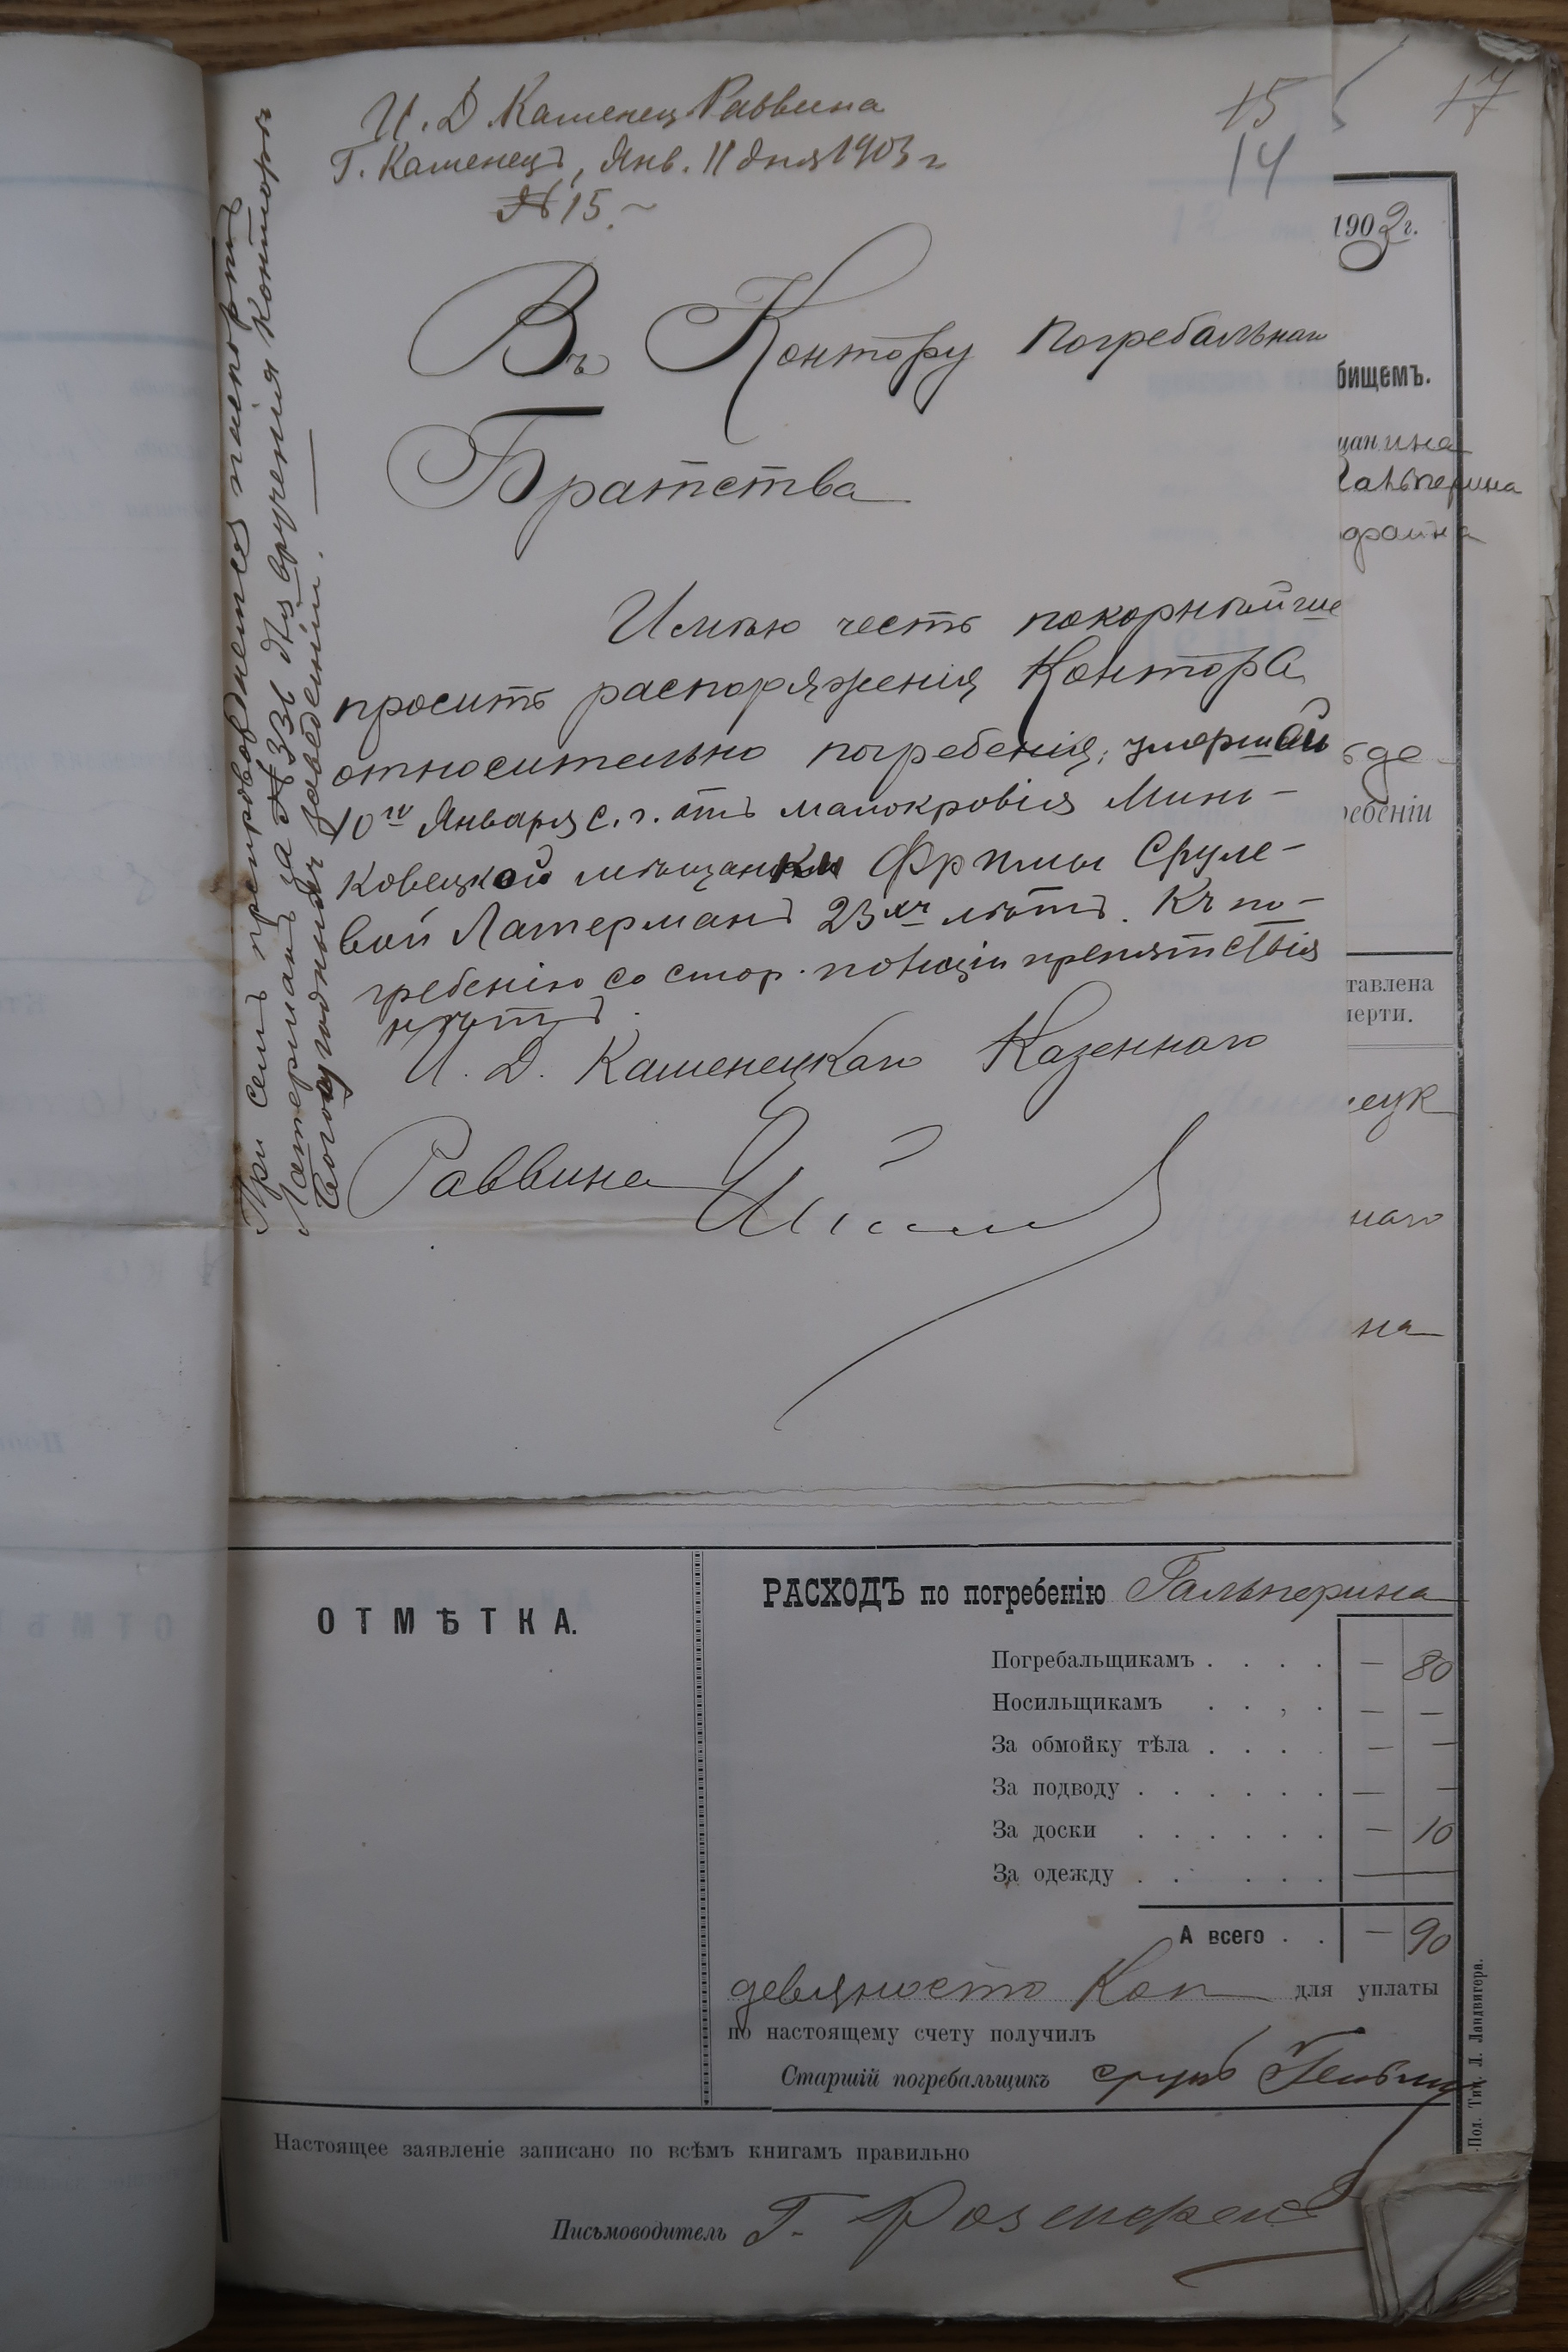 И. Д. Каменец Раввина
Г. Каменецъ, Янв. 11 дня 1903 г
№ 15.
15
14
17
Въ Контору Погребальнаго
Братства
Имѣю честь покорнѣйше
просить распоряженія Конторы
относительно погребенія, умершей
10го Января с. г. отъ малокровія Минь-
ковецкой мѣщанки Фримы Сруле-
вой Латерманъ 23хъ лѣтъ. Къ по-
гребенію со стор. полиціи препятствія
нѣтъ.
И. Д. Каменецкаго Казеннаго
Раввина
При семъ препровождается паспортъ
Латерманъ за № 336 для врученія Конторы
Богоугодныхъ заведеній.
1903 г.
бищемъ.
щанина
Гальперина
ребеніи
тавлена
мерти.
ецк
наго
на
ОТМѢТКА.
РАСХОДЪ по погребенію Гальперина
Погребальщикамъ . . . . — 80
Носильщикамъ . . , . — —
За обмойку тѣла . . . . — —
За подводу . . . . . . — —
За доски . . . . . . — 10
За одежду . . . . . —
А всего . . — 90
девяносто Коп для уплаты
по настоящему счету получилъ
Старшій погребальщикъ Сруль
Настоящее заявленіе записано по всѣмъ книгамъ правильно
Письмоводитель Г. Розенфельд
-Под. Тип. Л. Ландвигера.